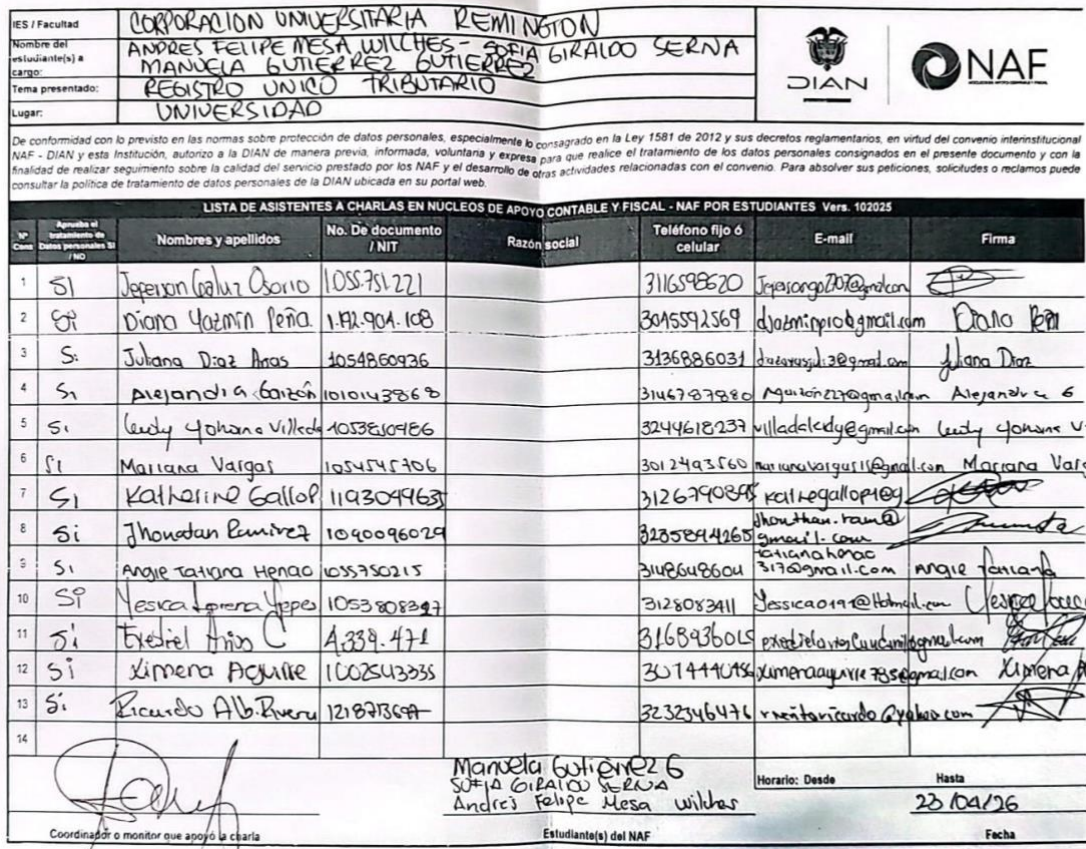 IES / Facultad CORPORACION UNIVERSITARIA REMINGTON
Nombre del estudiante(s) a cargo: ANDRES FELIPE MESA WILCHES - SOFIA GIRALDO SERNA
MANUELA GUTIERREZ GUTIERREZ
Tema presentado: REGISTRO UNICO TRIBUTARIO
Lugar: UNIVERSIDAD
DIAN
NAF
De conformidad con lo previsto en las normas sobre protección de datos personales, especialmente lo consagrado en la Ley 1581 de 2012 y sus decretos reglamentarios, en virtud del convenio interinstitucional
NAF - DIAN y esta Institución, autorizo a la DIAN de manera previa, informada, voluntaria y expresa para que realice el tratamiento de los datos personales consignados en el presente documento y con la
finalidad de realizar seguimiento sobre la calidad del servicio prestado por los NAF y el desarrollo de otras actividades relacionadas con el convenio. Para absolver sus peticiones, solicitudes o reclamos puede
consultar la política de tratamiento de datos personales de la DIAN ubicada en su portal web.
LISTA DE ASISTENTES A CHARLAS EN NUCLEOS DE APOYO CONTABLE Y FISCAL - NAF POR ESTUDIANTES Vers. 102025
Nº Cons Aprueba el tratamiento de Datos personales SI / NO Nombres y apellidos No. De documento / NIT Razón social Teléfono fijo ó celular E-mail Firma
1 SI Osorio 1055.751.221 3116598620
2 Si Diana Yazmin Peña 3045592569 Diana
3 Si Juliana Diaz Arias 1054860936 3136886031 Juliana Diaz
4 Si Alejandra Garzón 1010143868 3146787880 Alejandra G
5 Si Leidy Yohana Villada 3244618237 villadaleidy@gmail.com Leidy Yohana V
6 Si Mariana Vargas 1054545706 3012493560 Mariana Varg
7 Si Katherine Gallop 1193049635 kathegallop1@g
8 Si Jhonatan Ramirez 1090096029 3235894265
gmail.com
9 Si Angie Tatiana Henao 1055750215 3148648604 tatianahenao
317@gmail.com Angie Tatiana
10 Si Yesica Lorena Yepes 3128083411 Yessica0191@Hotmail.com
11 Si C 4.339.471 3168936015
12 Si Ximena Aguirre 1002543335 Ximena
13 Si Ricardo Alb. Rivera 3232346476
14
Manuela Gutiérrez G
SOFIA GIRALDO SERNA
Andrés Felipe Mesa Wilches
Horario: Desde Hasta
23/04/26
Coordinador o monitor que apoyó la charla Estudiante(s) del NAF Fecha